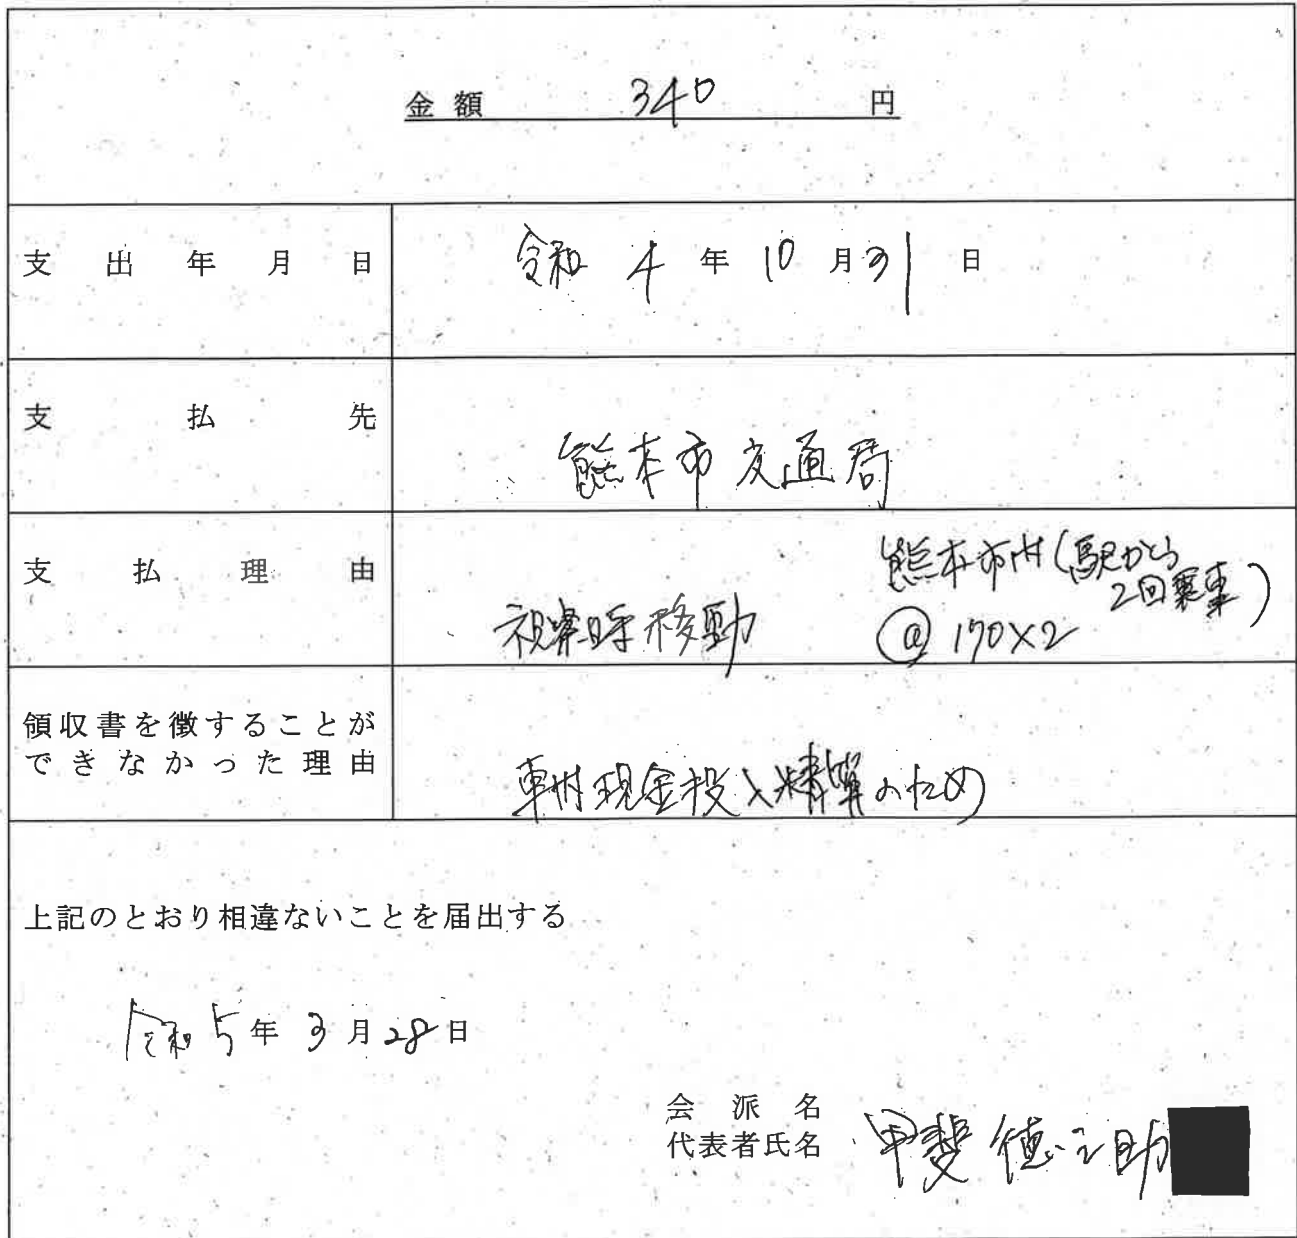 金額 340 円
支出年月日 令和 4 年 10 月 31 日
支払先 熊本市交通局
支払理由 視察時移動 熊本市内(駅から
2回乗車)
@170×2
領収書を徴することが
できなかった理由 車内現金投入精算のため
上記のとおり相違ないことを届出する
令和 5 年 3 月 28 日
会派名
代表者氏名 甲斐德之助